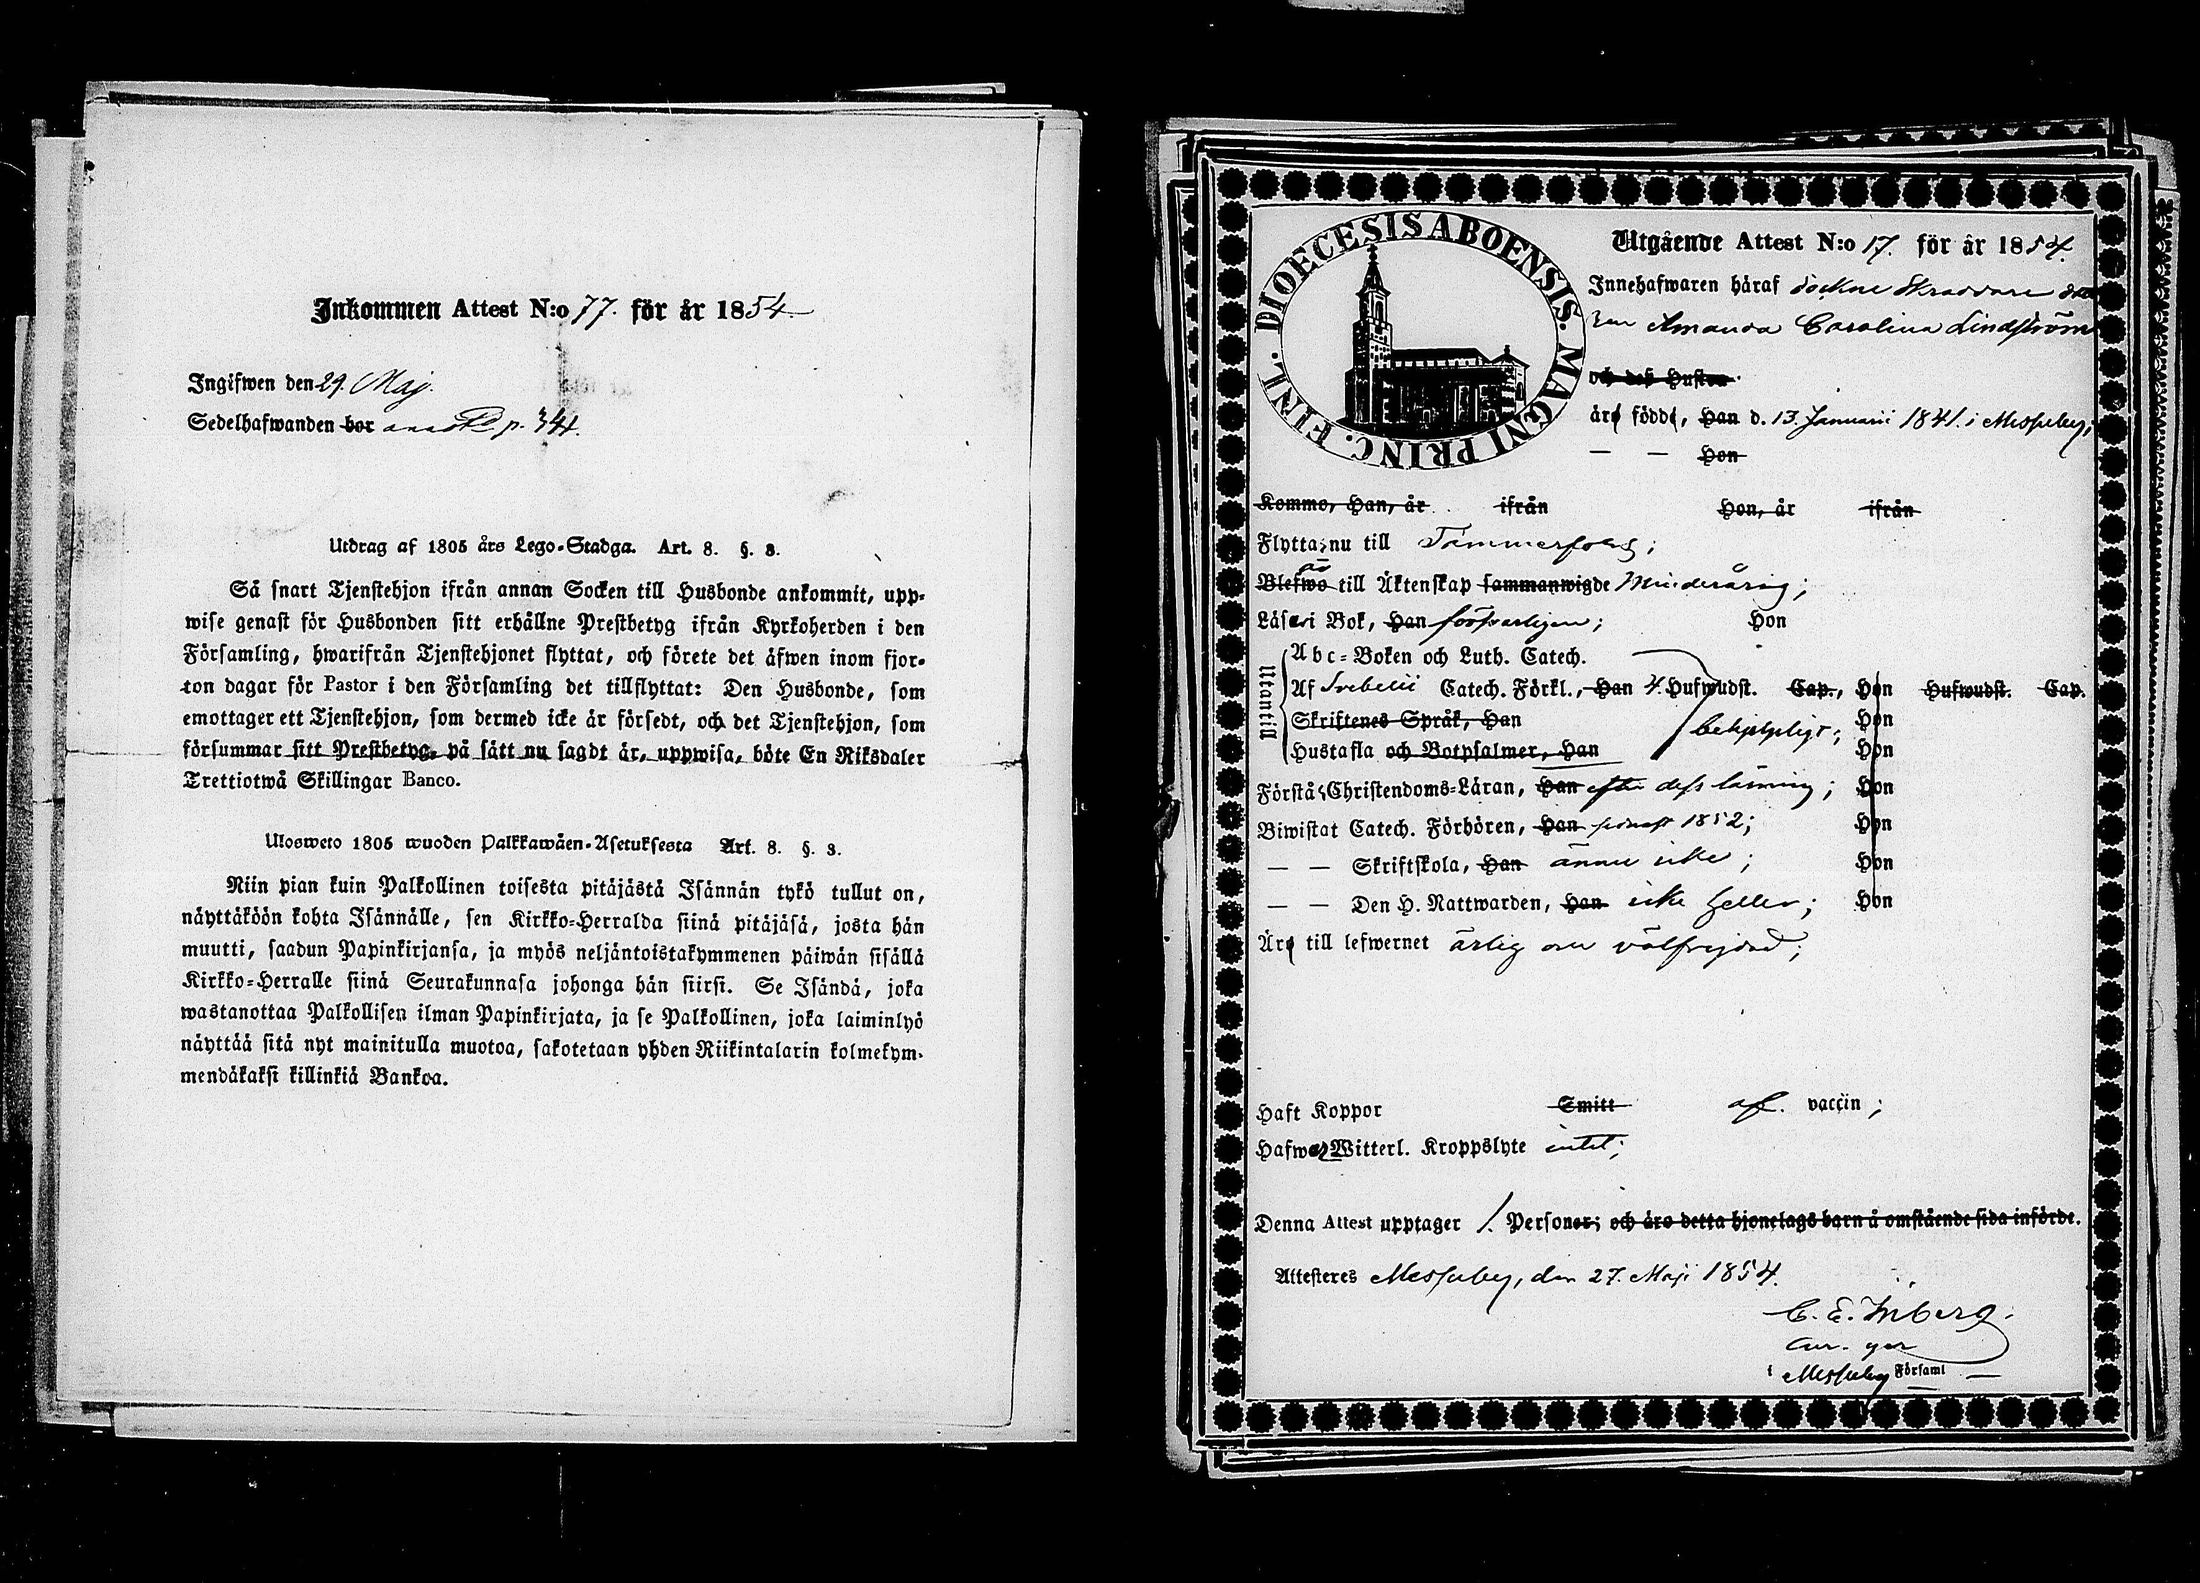 Inkommen Attest N:o 77. för år 1854.
Ingifwen den 29. Maj.
Sedelhafwanden bor p. 344.
Utdrag af 1805 års Lego-Stadga. Art. 8. §. 8.
Så snart Tjenstehjon ifrån annan Socken till Husbonde ankommit, upp-
wise genast för Husbonden sitt erhållne Prestbetyg ifrån Kyrkoherden i den
Församling, hwarifrån Tjenstehjonet flyttat, och förete det äfwen inom fjor-
ton dagar för Pastor i den Församling det tillflyttat: Den Husbonde, som
emottager ett Tjenstehjon, som dermed icke är försedt, och det Tjenstehjon, som
försummar sitt Prestbetyg, på sätt nu sagdt är, uppwisa, böte En Riksdaler
Trettiotwå Skillingar Banco.
Ulosweto 1805 wuoden Palkkawäen-Asetuksesta Art. 8. §. 8.
Niin pian kuin Palkollinen toisesta pitäjästä Isännän tykö tullut on,
näyttäköön kohta Isännälle, sen Kirkko-Herralda siinä pitäjäsä, josta hän
muutti, saadun Papinkirjansa, ja myös neljäntoistakymmenen päiwän sisällä
Kirkko-Herralle siinä Seurakunnasa johonga hän siirsi. Se Isändä, joka
wastanottaa Palkollisen ilman Papinkirjata, ja se Palkollinen, joka laiminlyö
näyttää sitä nyt mainitulla muotoa, sakotetaan yhden Riikintalarin kolmekym-
mendäkaksi killinkiä Bankoa.
DIOECESIS ABOENSIS. MAGNI PRINC. FINL.
Utgående Attest N:o 17. för år 1854.
Innehafwaren häraf Sockne Skraddare dot
ren Amanda Carolina Lindström
och dess Hustru
äro födde, Han d. 13. Januarii 1841. i Messuby;
— — Hon
Kommo, Han, år ifrån Hon, år ifrån
Flytta nu till Tammerfors;
Blefwo till Äktenskap sammanwigde Minderårig;
Läser i Bok, Han försvarligen; Hon
Utantill
Abc-Boken och Luth. Catech.
Af Svebelii Catech. Förkl., Han 4. Hufwudst. Cap., Hon Hufwudst. Cap.
Skriftenes Språk, Han behjelpligt; Hon
Hustafla och Botpsalmer, Han Hon
Förstå Christendoms-Läran, Han efter dess läsning; Hon
Biwistat Catech. Förhören, Han senast 1852; Hon
— — Skriftskola, Han ännu icke; Hon
— — Den H. Nattwarden, Han icke heller; Hon
Äro till lefwernet ärlig och välfrejdad;
Haft Koppor Smitt af vaccin;
Hafwa Witterl. Kroppslyte intet;
Denna Attest upptager 1. Personer; och äro detta hjonelags barn å omstående sida införde.
Attesteres Messuby, den 27. Maji 1854.
C. E. Inberg.
i Messuby Församl